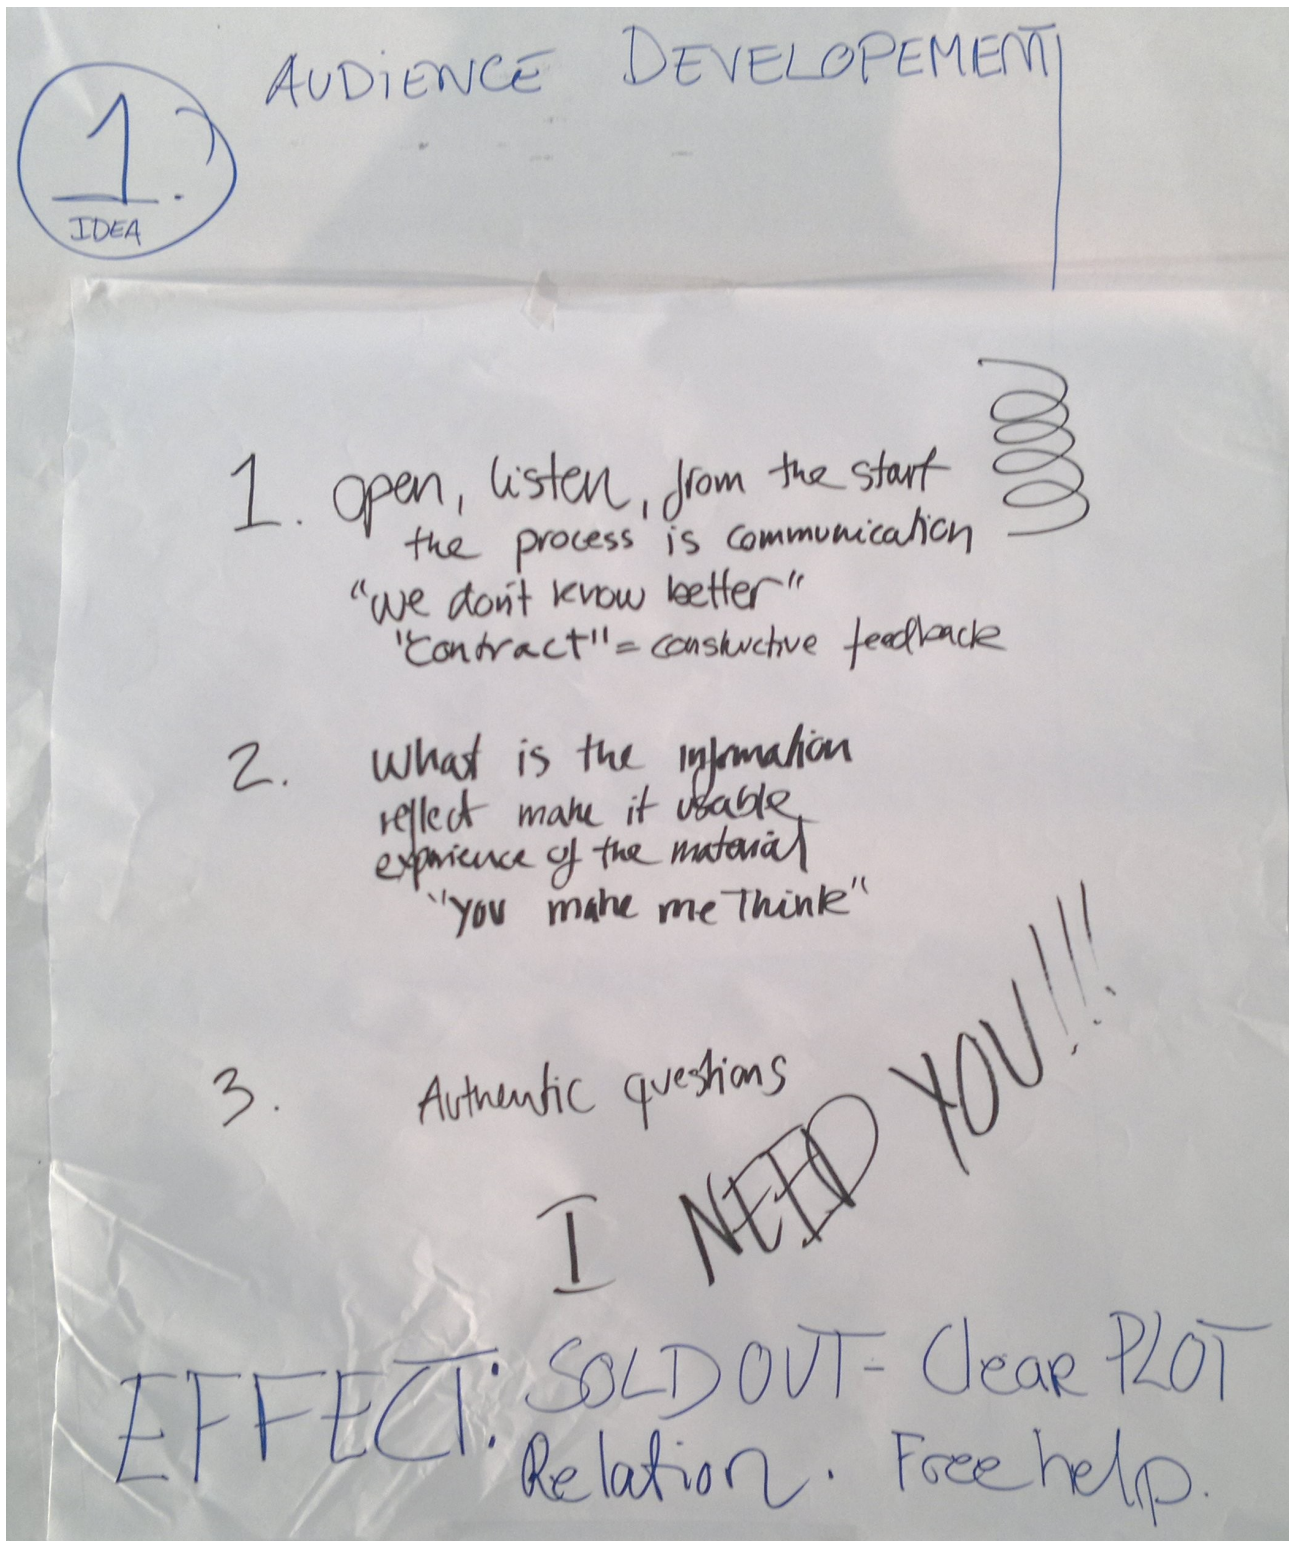 AUDiENCE DEVELOPEMENT
1.
IDEA
1. open, listen, from the start
the process is communication
"we don't know better"
"contract" = constructive feedback
2. What is the information
reflect make it usable
experience of the material
"you make me Think"
3. Authentic questions
I NEED YOU!!!
EFFECT: SOLD OUT - Clear PLOT
Relation. Free help.